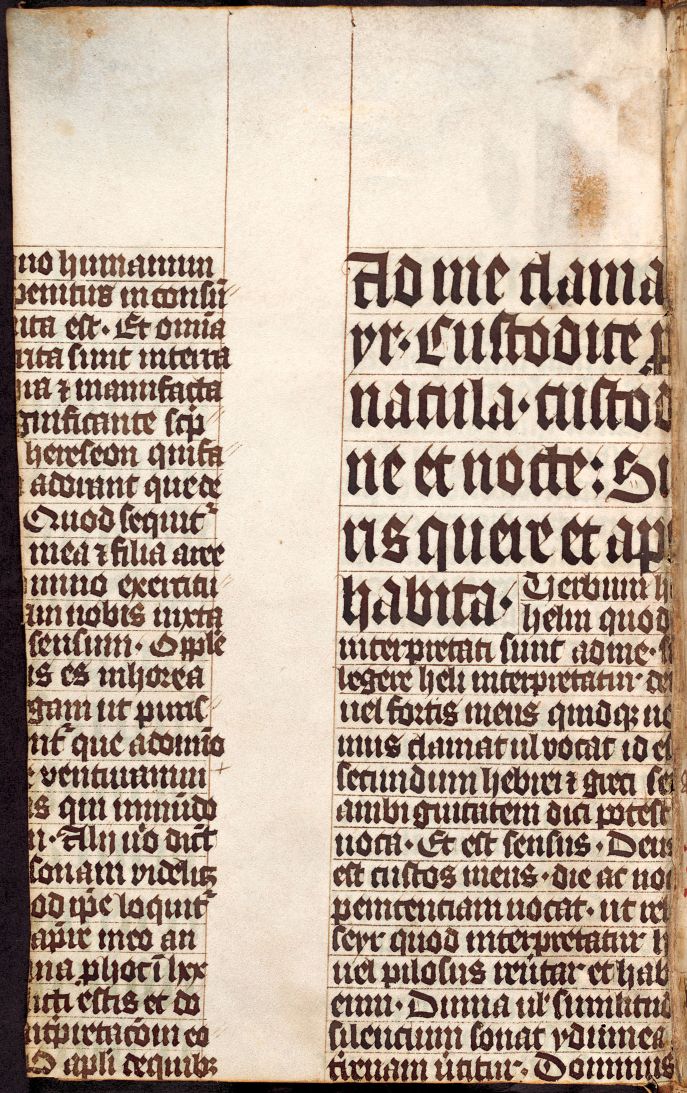 no humanum
penitus in consū
ita est. Et omīa
rita sunt in terra
na ⁊ manufacta
gnificante scp̄
hereseon qui fa
adorant que de
Quod sequit᷑
mea ⁊ filia aree
mino exercitu
um nobis iuxta
sensum. Opple
is es in horea
gam ut puris
nt᷑ que a domīo
venturam
is qui in mūdo
n. Alij ūo dict̄
sonam videlicꝫ
od ip̄e loquit᷑
ap̄ire meo an
na phoc ī lxx
icti estis et do
int̄pretac̄om eo
D apl̄i de quibꝫ
Ad me clama
yr. Custodite p
nacula. custod
ne et nocte: Si
tis querere et ap
habita.
Verbum h
helin quod
interpretati sunt ad me. s
legere heli interpretatur de
uel fortis meus quidqꝫ uo
mus clamat ul vocat id e
secundum hebrei ⁊ greci se
ambiguitatem dici potest
noca. Et est sensus. Deus
est custos meus. die ac noc
penitentiam uocat. ut re
seyr quod interpretatur h
uel pilosus reūtar et hab
eum. Duma ul similitud
silentium sonat ydumea
terrenam Dominus